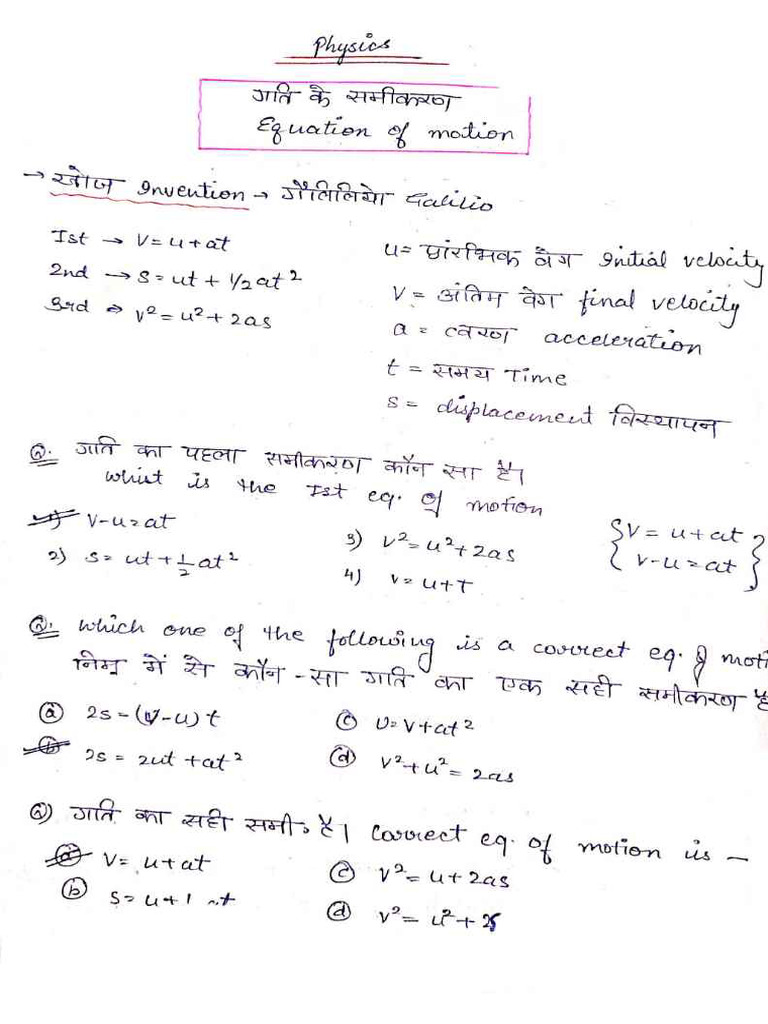 Physics
गति के समीकरण
Equation of motion
→ खोज Invention → गैलिलियो Galilio
Ist → V = u + at
2nd → S = ut + 1/2 at²
3rd ⇒ v² = u² + 2as
u = प्रारंभिक वेग Initial velocity
V = अंतिम वेग final velocity
a = त्वरण acceleration
t = समय Time
s = displacement विस्थापन
Q. गति का पहला समीकरण कौन सा है।
what is the Ist eq. of motion
1) V-u = at
2) S = ut + 1/2 at²
3) V² = u² + 2as
4) V = u + T
{ V = u + at
V - u = at }
Q. which one of the following is a correct eq. of moti
निम्न में से कौन - सा गति का एक सही समीकरण है
(a) 2s - (v - u) t
(b) 2s = 2ut + at²
(c) U = V + at²
(d) V² + u² = 2as
Q) गति का सही समी. है। Correct eq. of motion is —
(a) V = u + at
(b) S = u + 1
(c) V² = u + 2as
(d) V² = u² +